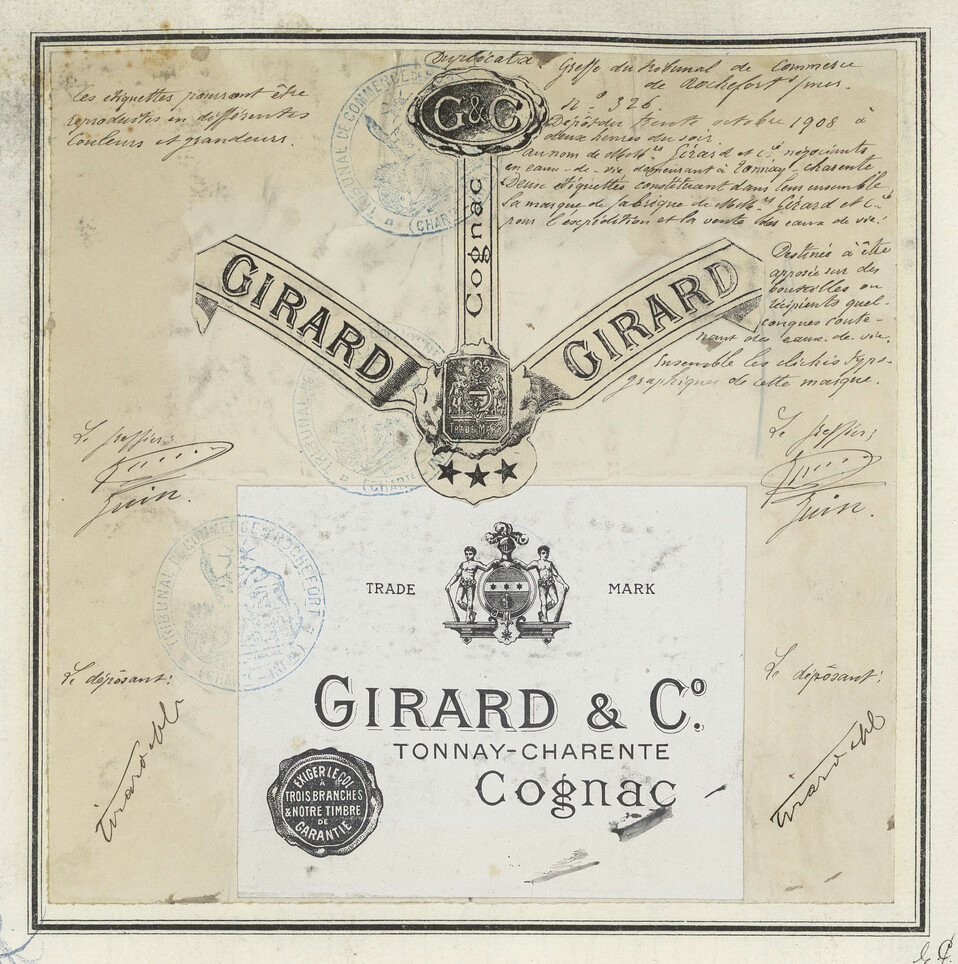 Duplicata. Greffe du tribunal de Commerce
de Rochefort s/mer.
N° 326.
Dépôt du trente octobre 1908 à
deux heures du soir
au nom de MMrs Girard et Cie négociants
en eaux-de-vie demeurant à Tonnay-Charente
Deux étiquettes constituant dans leur ensemble
la marque de fabrique de MMrs Girard et Cie
pour l'expédition et la vente des eaux de vie.
Destinée à être
apposée sur des
bouteilles ou
récipients quel-
conques conte-
nant des eaux-de-vie.
Ensemble les clichés typo-
graphiques de cette marque.
Les étiquettes pourront être
reproduites en différentes
Couleurs et grandeurs.
G&C
Cognac
GIRARD
GIRARD
TRADE MARK
TRIBUNAL DE COMMERCE DE
(CHAR
TRIBUNAL DE
(CHARTE
Le greffier:
Juin.
Le greffier:
Juin.
TRIBUNAL DE COMMERCE DE ROCHEFORT
(CHARTE-INFRE)
Le déposant:
Girard & Cie
Le déposant:
Girard & Cie
TRADE MARK
GIRARD & Co.
TONNAY-CHARENTE
Cognac
EXIGER LE COL
À
TROIS BRANCHES
& NOTRE TIMBRE
DE
GARANTIE